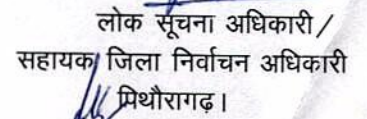 लोक सूचना अधिकारी/
सहायक जिला निर्वाचन अधिकारी
पिथौरागढ़।